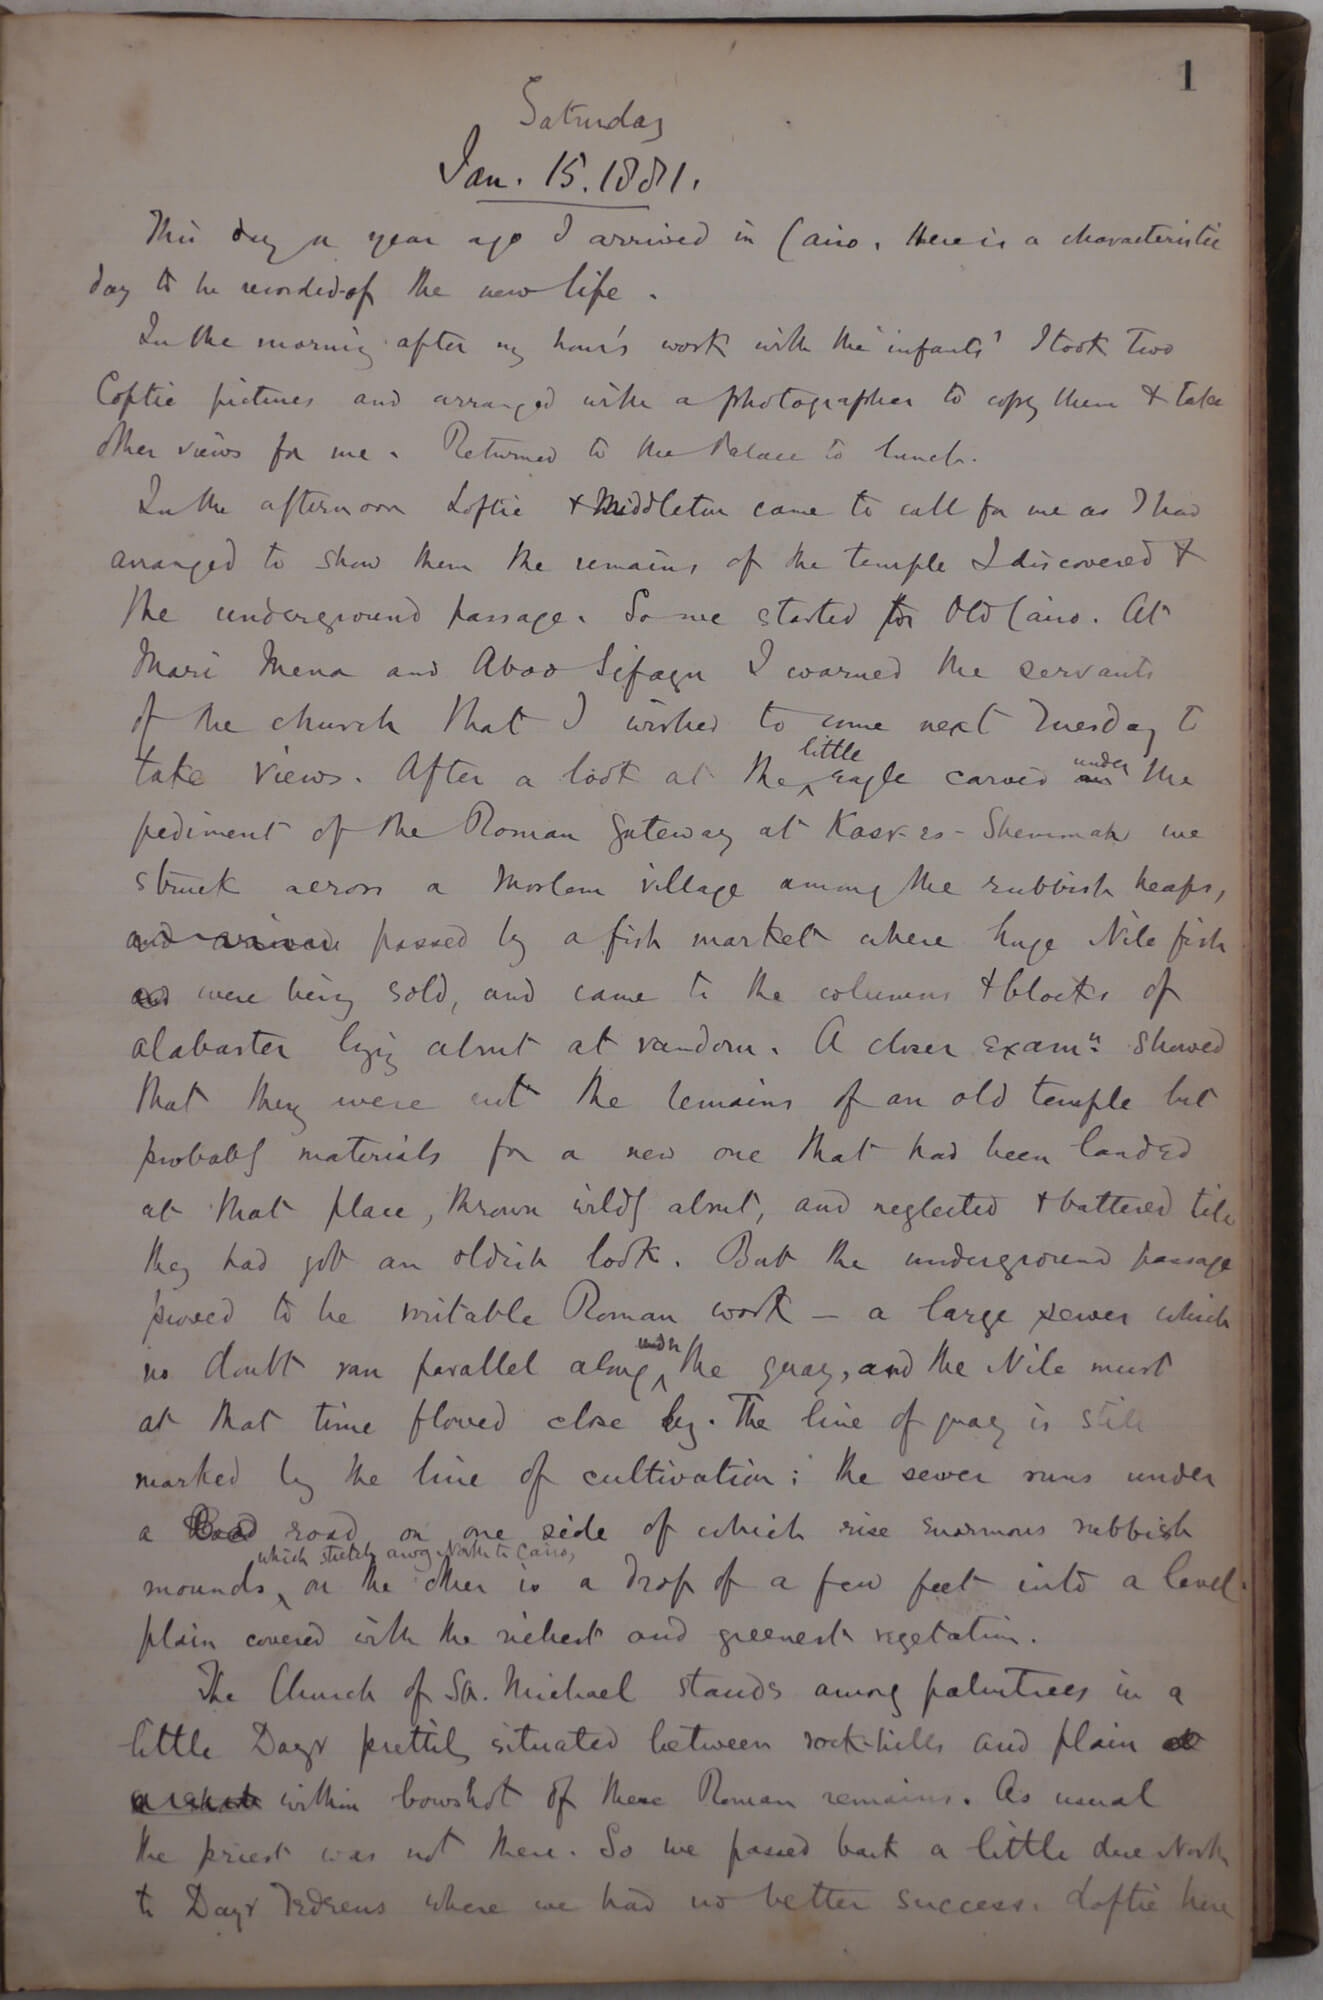 1
Saturday
Jan. 15. 1881.
This day a year ago I arrived in Cairo. Here is a characteristic
day to be recorded of the new life.
In the morning after my hour's work with the 'infants' I took two
Coptic pictures and arranged with a photographer to copy them & take
other views for me. Returned to the Palace to lunch.
In the afternoon Loftie & Middleton came to call for me as I had
arranged to show them the remains of the temple I discovered &
the underground passage. So we started for Old Cairo. At
Mari Mena and Aboo Sifayn I warned the servants
of the church that I wished to come next Tuesday to
take views. After a look at the little eagle carved under the
pediment of the Roman gateway at Kasr-es-Shemmah we
struck across a Moslem village among the rubbish heaps,
and arrived passed by a fish market where huge Nile fish
and were being sold, and came to the columns & blocks of
alabaster lying about at random. A closer examn. showed
that they were not the remains of an old temple but
probably materials for a new one that had been landed
at that place, thrown wildly about, and neglected & battered till
they had got an oldish look. But the underground passage
proved to be veritable Roman work – a large sewer which
no doubt ran parallel along under the quay, and the Nile must
at that time flowed close by. The line of quay is still
marked by the line of cultivation: the sewer runs under
a road road, on one side of which rise enormous rubbish
mounds, which stretch away North to Cairo, on the other is a drop of a few feet into a level
plain covered with the richest and greenest vegetation.
The Church of St. Michael stands among palmtrees in a
little Dayr prettily situated between rock-hills and plain
within bowshot of these Roman remains. As usual
the priest was not there. So we passed back a little due North
to Dayr Tadrus where we had no better success. Loftie here